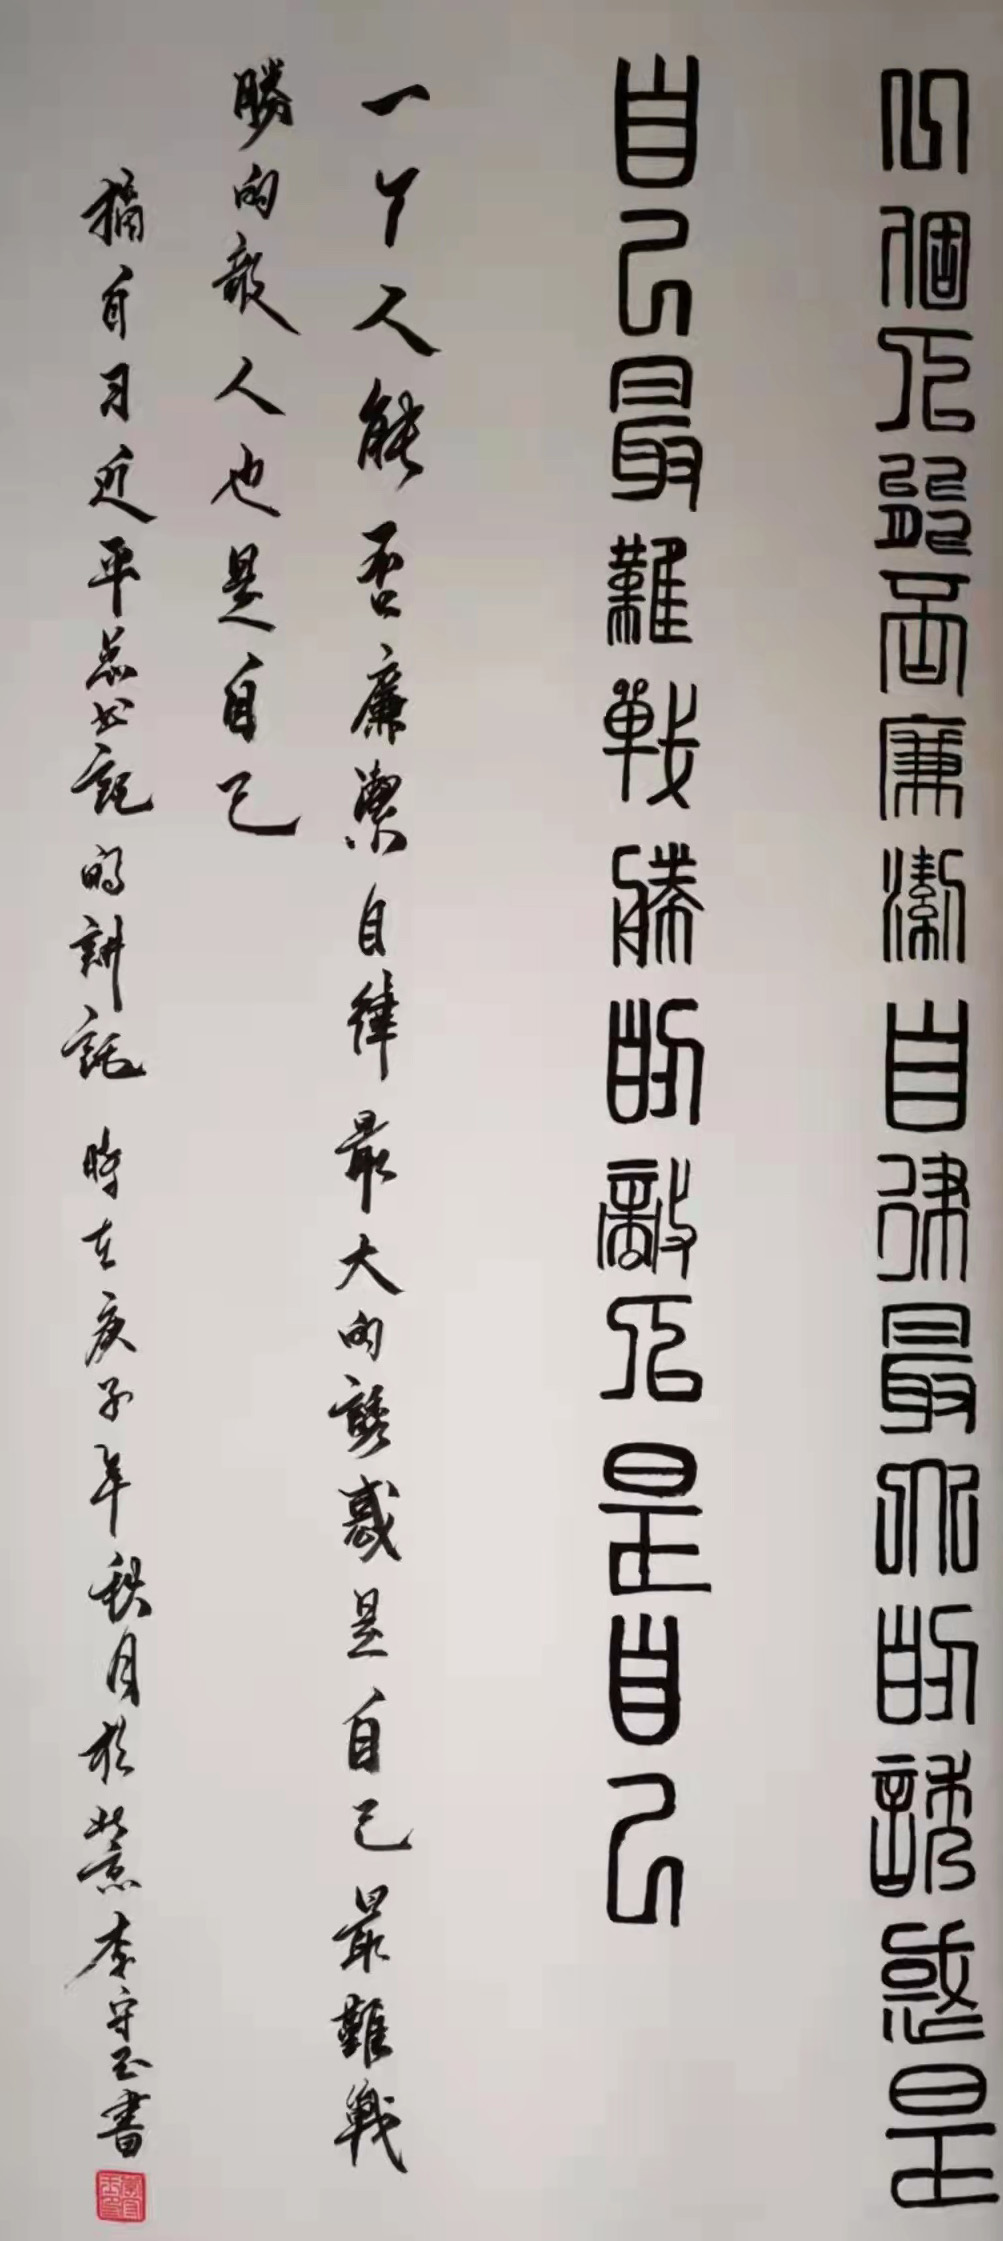 一個人能否廉潔自律最大的誘惑是
自己最難戰勝的敵人是自己
一个人能否廉潔自律最大的誘惑是自己最難戰
勝的敵人也是自己
摘自习近平总书記的講話 時在庚子年秋月於北京李守玉書